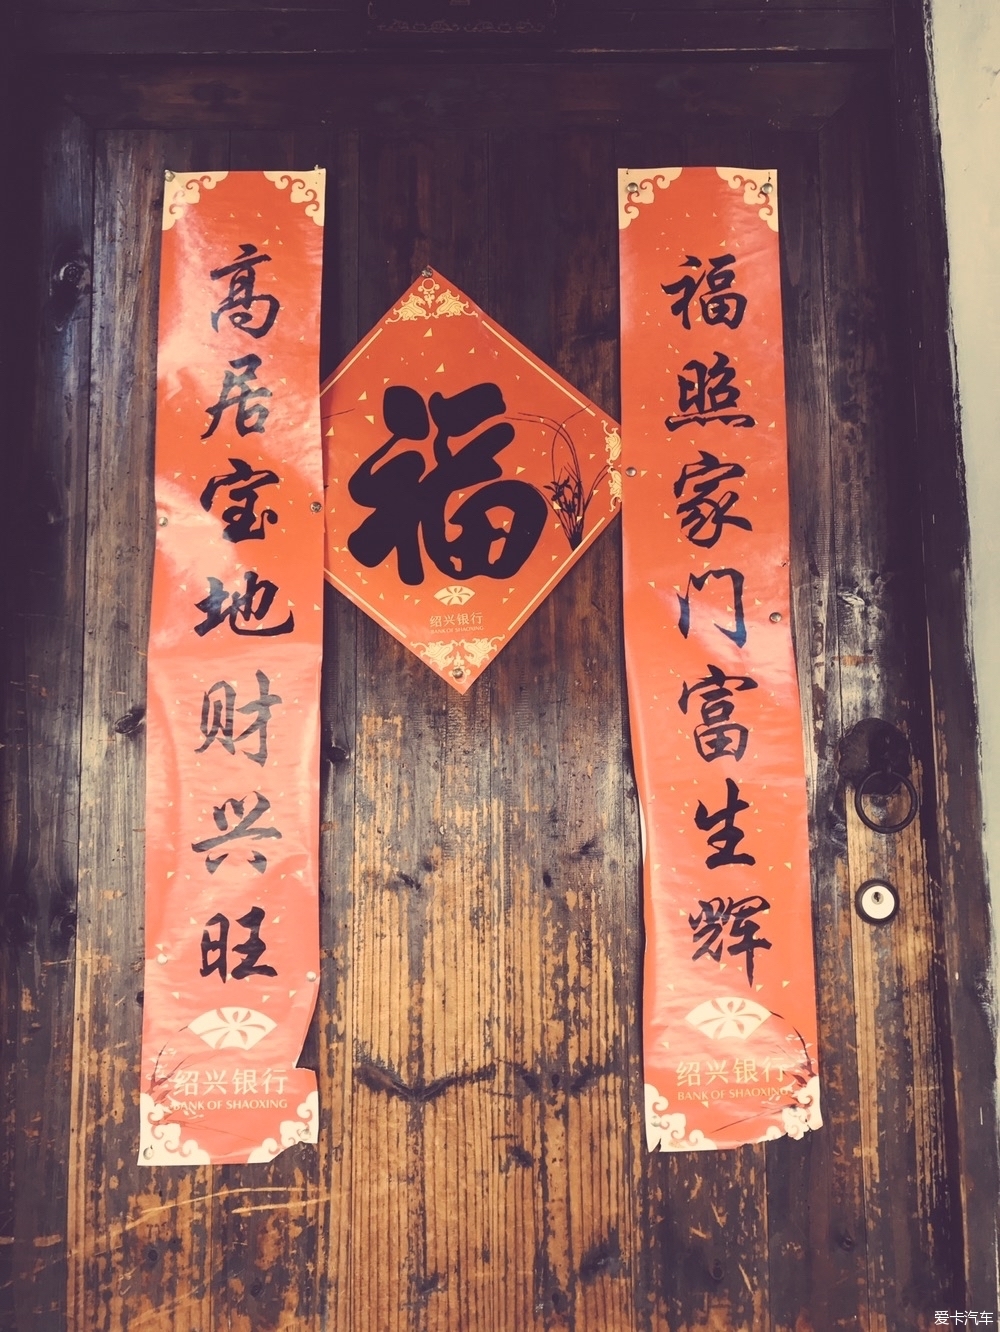 福照家门富生辉
绍兴银行
BANK OF SHAOXING
福
绍兴银行
BANK OF SHAOXING
高居宝地财兴旺
绍兴银行
BANK OF SHAOXING
爱卡汽车